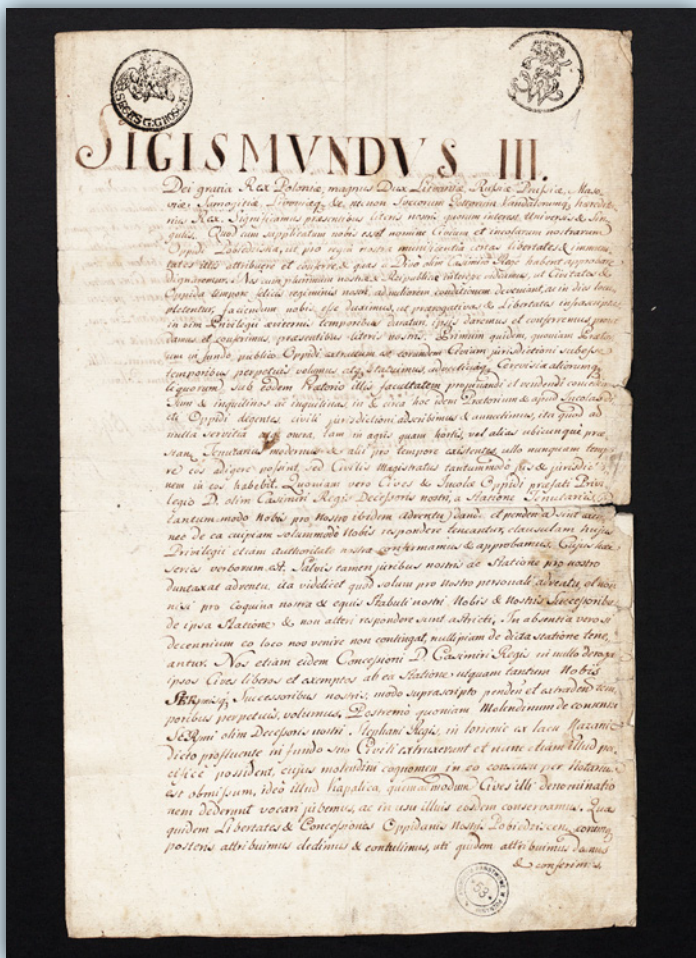 SIGISMVNDVS III.
Dei gratia Rex Poloniæ, magnus Dux Lithuaniæ, Russiæ, Prussiæ, Maso-
viæ, Samogitiæ, Livoniæq, &, nec non Svecorum Gottorum Vandalorumq hæredita-
rius Rex. Significamus præsentibus literis nostris quorum interest, Universis & Sin-
gulis. Quod cum supplicatum nobis esset nomine Civium et incolarum nostrorum
Oppidi ut pro regia nostra munificentia certas libertates & immuni-
tates illis attribuere et conferre, & quas a Divo olim Casimiro Rege habent approbare
dignaremur. Nos cum plurimum nostra & Reipublicæ interesse videamus, ut Civitates &
Oppida tempore felicis regiminis nostri, ad meliorem conditionem deveniant, ac in dies locu-
pletentur, faciendum nobis esse duximus, ut prærogativas & Libertates infrascriptas
in vim Privilegii temporibus duratur. ipsis daremus et conferremus prout
damus et conferimus, præsentibus literis nostris. Primum quidem, quoniam Præto-
rium in fundo publico Oppidi extructum et eorundem Civium jurisdictioni subesse
temporibus perpetuis volumus atq, statuimus, Cerevisiæ aliorumq
liquorum, sub eodem Prætorio illis facultatem propinandi et vendendi
& inquilinos ac inquilinas, in & circa hoc idem Prætorium & apud Incolas
Oppidi degentes, civili jurisdictioni adscribimus & annectimus, ita quod ad
nulla servitia onera, tam in agris quam hortis, vel alias ubicunque præ-
stan. Tenutarius modernus & alii pro tempore existentes ullo nunquam tempo-
re eos adigere possint, sed Civilis Magistratus tantummodo jus & jurisdictio-
nem in eos habebit. Quoniam vero Cives & Incolæ Oppidi præfati Privi-
legio D. olim Casimiri Regis Decessoris nostri, a Statione Tenutariis
(tantummodo Nobis pro Nostro ibidem adventu) danda et pendenda sint
nec de ea cuipiam solummodo Nobis respondere teneantur, clausulam hujus
Privilegii etiam authoritate nostra confirmamus & approbamus, Cujus hæc
series verborum est. Salvis tamen juribus nostris ac Statione pro nostro
duntaxat adventu, ita videlicet quod solum pro Nostro personali adventu, et non
nisi pro coquina nostra & equis Stabuli nostri Nobis & Nostris Successoribus
de ipsa Statione & non alteri respondere sunt astricti. In absentia vero si
decennium eo loco nos venire non contingat, nulli piam de dicta statione tene-
antur. Nos etiam eidem Concessioni D. Casimiri Regis in nullo deroga
ipsos Cives liberos et exemptos ab ea Statione, usquam tantum Nobis
Successoribus nostris, modo suprascripto penden et extraden tem-
poribus perpetuis, volumus. Postremo quoniam Molendinum de consensu
SERmi olim Decessoris nostri, Stephani Regis, in torrente ex lacu
dicto profluente in fundo suo Civili extruxerunt et nunc etiam illud pa-
cifice possident, cujus molendini cognomen in eo consensu per Notarium
est obmissum, ideo illud hapalica quemadmodum Cives illi denominatio-
nem dederunt vocari jubemus, ac in usu illius eosdem conservamus. Quas
quidem Libertates & Concessiones Oppidanis Nostris
posteris attribuimus & contulimus, uti quidem attribuimus damus
& conferimus.
53